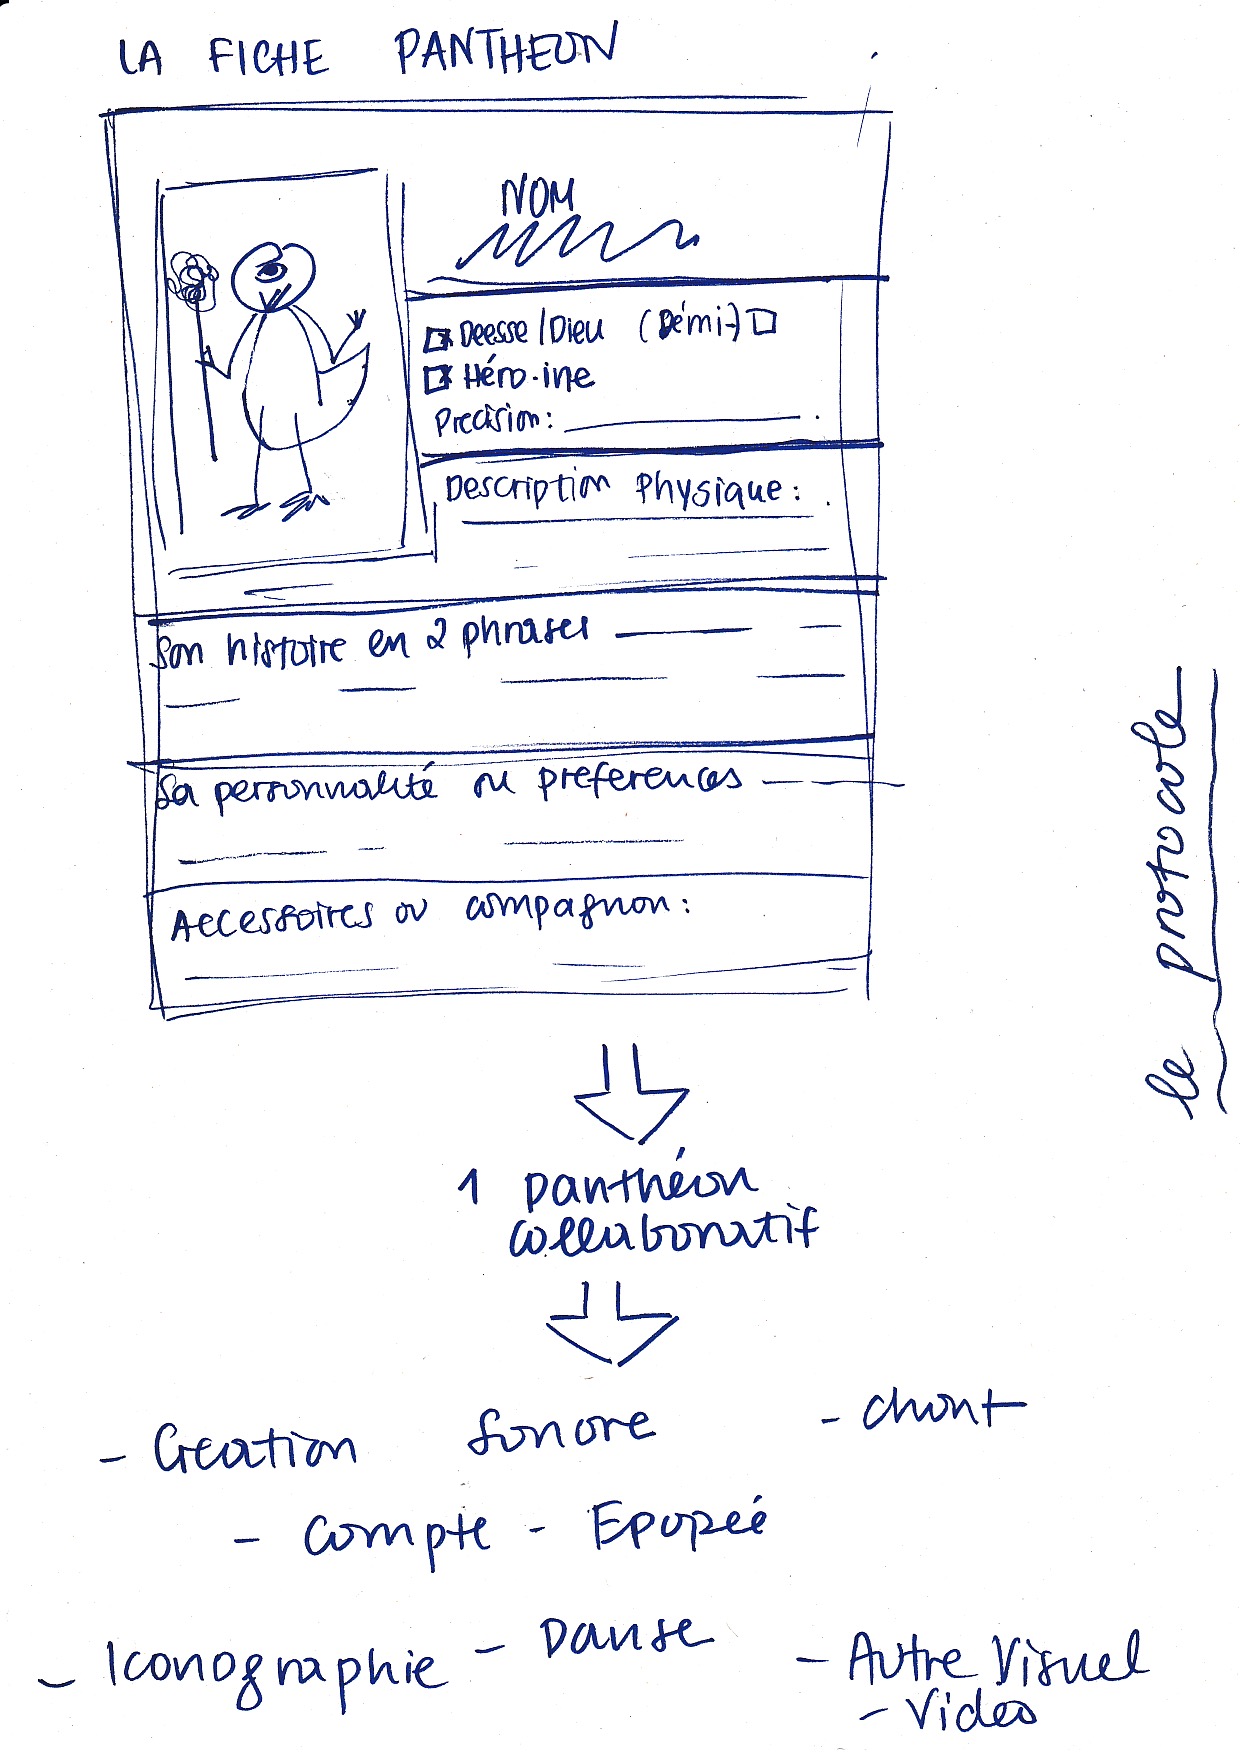 LA FICHE PANTHEON
NOM
Deesse/Dieu (Démi-)
Héro.ine
Precision:
Description Physique:
Son histoire en 2 phrases
Sa personnalité ou preferences
Accessoires ou compagnon:
le protocole
1 panthéon
collaboratif
- Creation Sonore - chant
- Compte - Epopéé
- Iconographie - Danse - Autre Visuel
- Video